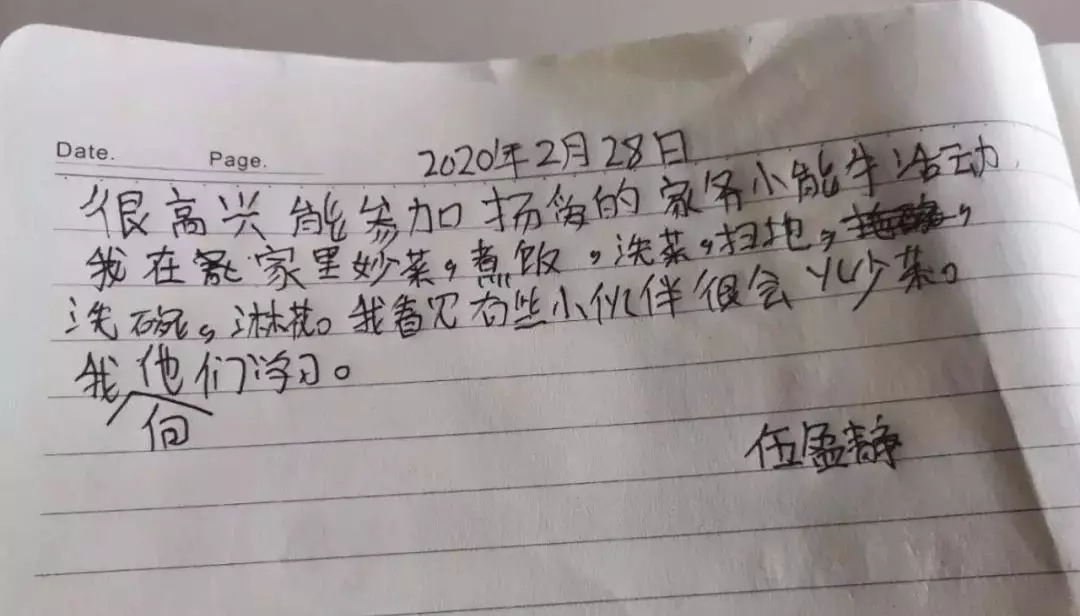 Date.
Page.
2020年2月28日
很高兴能参加扬海的家务小能牛活动
我在家里妙菜，煮饭，洗菜，扫地，
洗碗，淋花。我看见有些小伙伴很会炒菜。
我向他们学习。
伍孟静